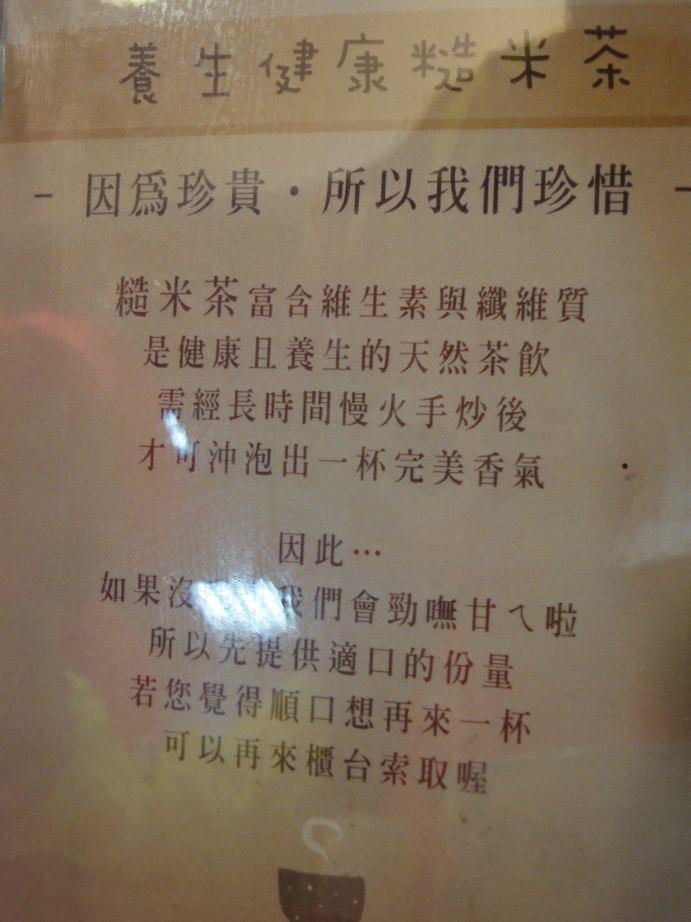 養生健康糙米茶
- 因為珍貴·所以我們珍惜 -
糙米茶富含維生素與纖維質
是健康且養生的天然茶飲
需經長時間慢火手炒後
才可沖泡出一杯完美香氣
因此…
如果沒我們會勁嘸甘ㄟ啦
所以先提供適口的份量
若您覺得順口想再來一杯
可以再來櫃台索取喔